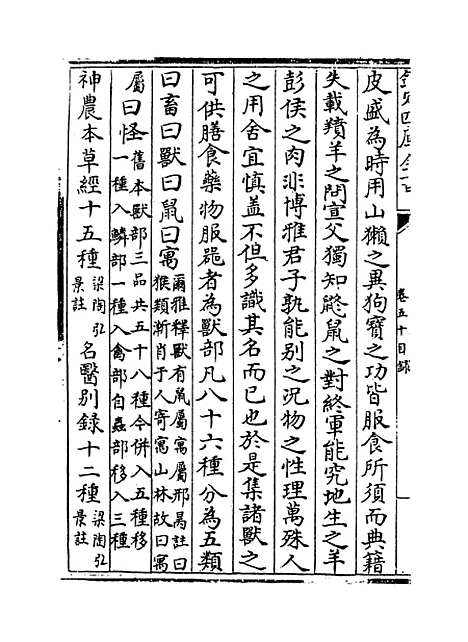 欽定四庫全書
卷五十目録
皮盛為時用山獺之異狗寳之功皆服食所須而典籍
失載羵羊之問宣父獨知鼮鼠之對終軍能究地生之羊
彭侯之肉非博雅君子孰能别之况物之性理萬殊人
之用舍宜慎盖不但多識其名而已也於是集諸獸之
可供膳食藥物服噐者為獸部凡八十六種分為五類
曰畜曰獸曰鼠曰寓爾雅釋獸有䑕屬寓屬邢昺註曰
猴類漸肖于人寄寓山林故曰寓
屬曰怪舊本獸部三品共五十八種今併入五種移
一種入鱗部一種入禽部自蟲部移入三種
神農本草經十五種梁陶弘
景註名醫别録十二種梁陶弘
景註